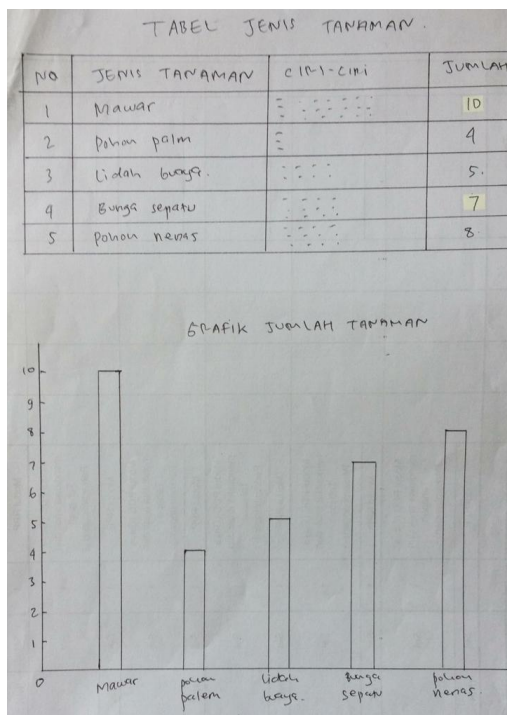 TABEL JENIS TANAMAN.
NO JENIS TANAMAN CIRI-CIRI JUMLAH
1 Mawar 10
2 Pohon palm 4
3 Lidah buaya. 5.
4 Bunga sepatu 7
5 Pohon nenas 8.
GRAFIK JUMLAH TANAMAN
10
9
8
7
6
5
4
3
2
1
0
Mawar pohon palem lidah buaya. Bunga sepatu pohon nenas.